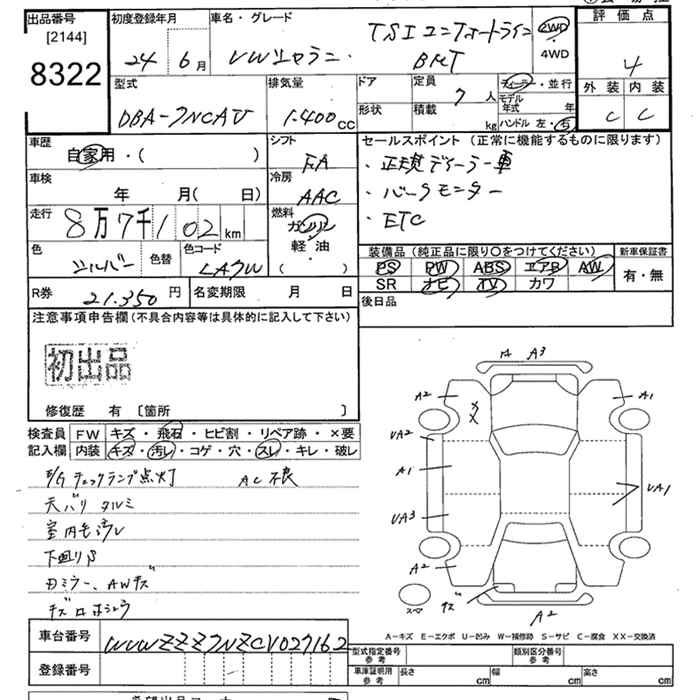 出品番号
[2144]
8322
初度登録年月
24年 6月
車名・グレード
VWシャラン
TSI コンフォートライン
BMT
2WD
・
4WD
評価点
4
外装 内装
C C
型式
DBA-7NCAV
排気量
1.400cc
ドア
形状
定員
7人
積載
kg
ディーラー・並行
モデル年式 年
ハンドル 左・右
車歴
自家用・( )
シフト
FA
車検
年 月( 日)
冷房
AAC
走行
8万7千102km
燃料
ガソリン
軽・油
( )
色
シルバー
色替
色コード
LA7W
セールスポイント(正常に機能するものに限ります)
・正規ディーラー車
・バックモニター
・ETC
装備品(純正品に限り○をつけてください)
新車保証書
PS PW ABS エアB AW
SR ナビ TV カワ
有・無
R券
21.350円
名変期限 月 日
後日品
注意事項申告欄(不具合内容等は具体的に記入して下さい)
初出品
修復歴 有 〔箇所 〕
検査員 FW キズ・飛石・ヒビ割・リペア跡・×要
記入欄 内装 キズ・汚レ・コゲ・穴・スレ・キレ・破レ
E/Gチェックランプ点灯 AC不良
天バリタルミ
室内毛汚レ
下廻りS
ドミラー、AWキズ
A3
A2
A1
XX
UA2
A1
UA3
UA1
A2
キズ
A2
スマ
A-キズ E-エクボ U-凹み W-補修跡 S-サビ C-腐食 XX-交換済
車台番号
WVWZZZ7NZCV027162
登録番号
型式指定番号
参考
類別区分番号
参考
車庫証明用
参考
長さ cm
幅 cm
高さ cm